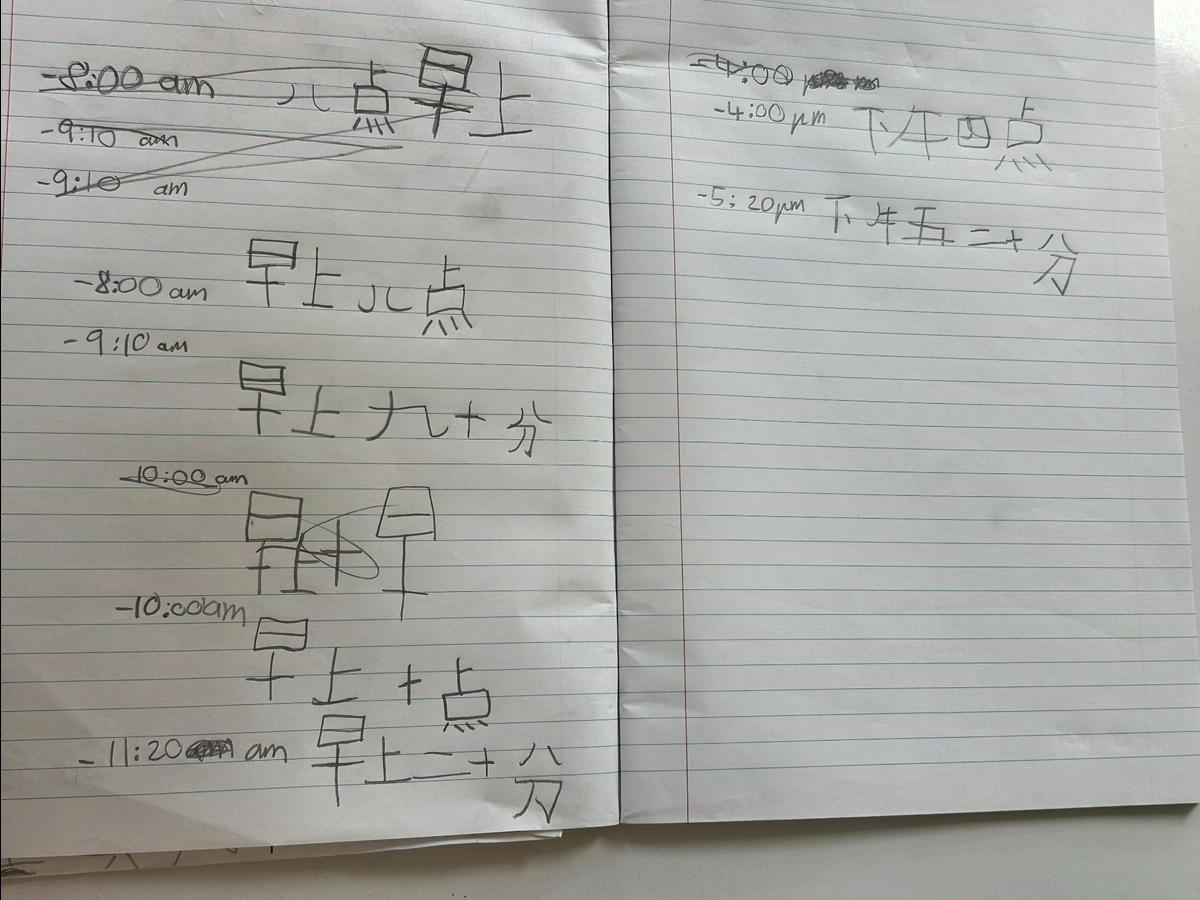 -8:00 am 八点早上
-9:10 am
-9:10 am
-8:00 am 早上八点
-9:10 am
早上九十分
-10:00 am
早上十早
-10:00am
早上十点
-11:20 am 早上二十分
-4:00
-4:00 pm 下午四点
-5:20pm 下午五二十分